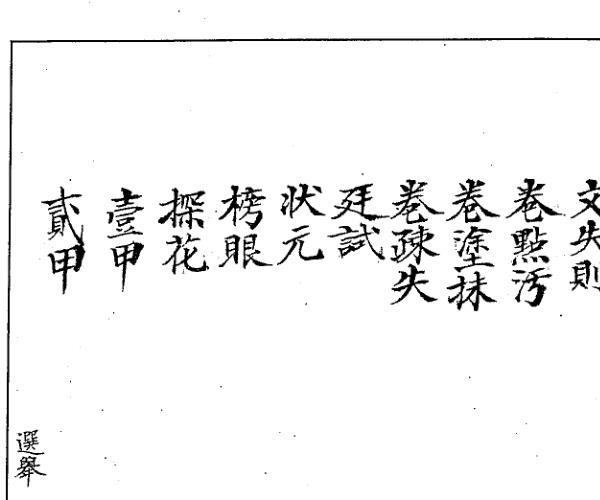 文失則
卷點汚
卷塗抹
卷疎失
廷試
狀元
榜眼
探花
壹甲
貳甲
選舉